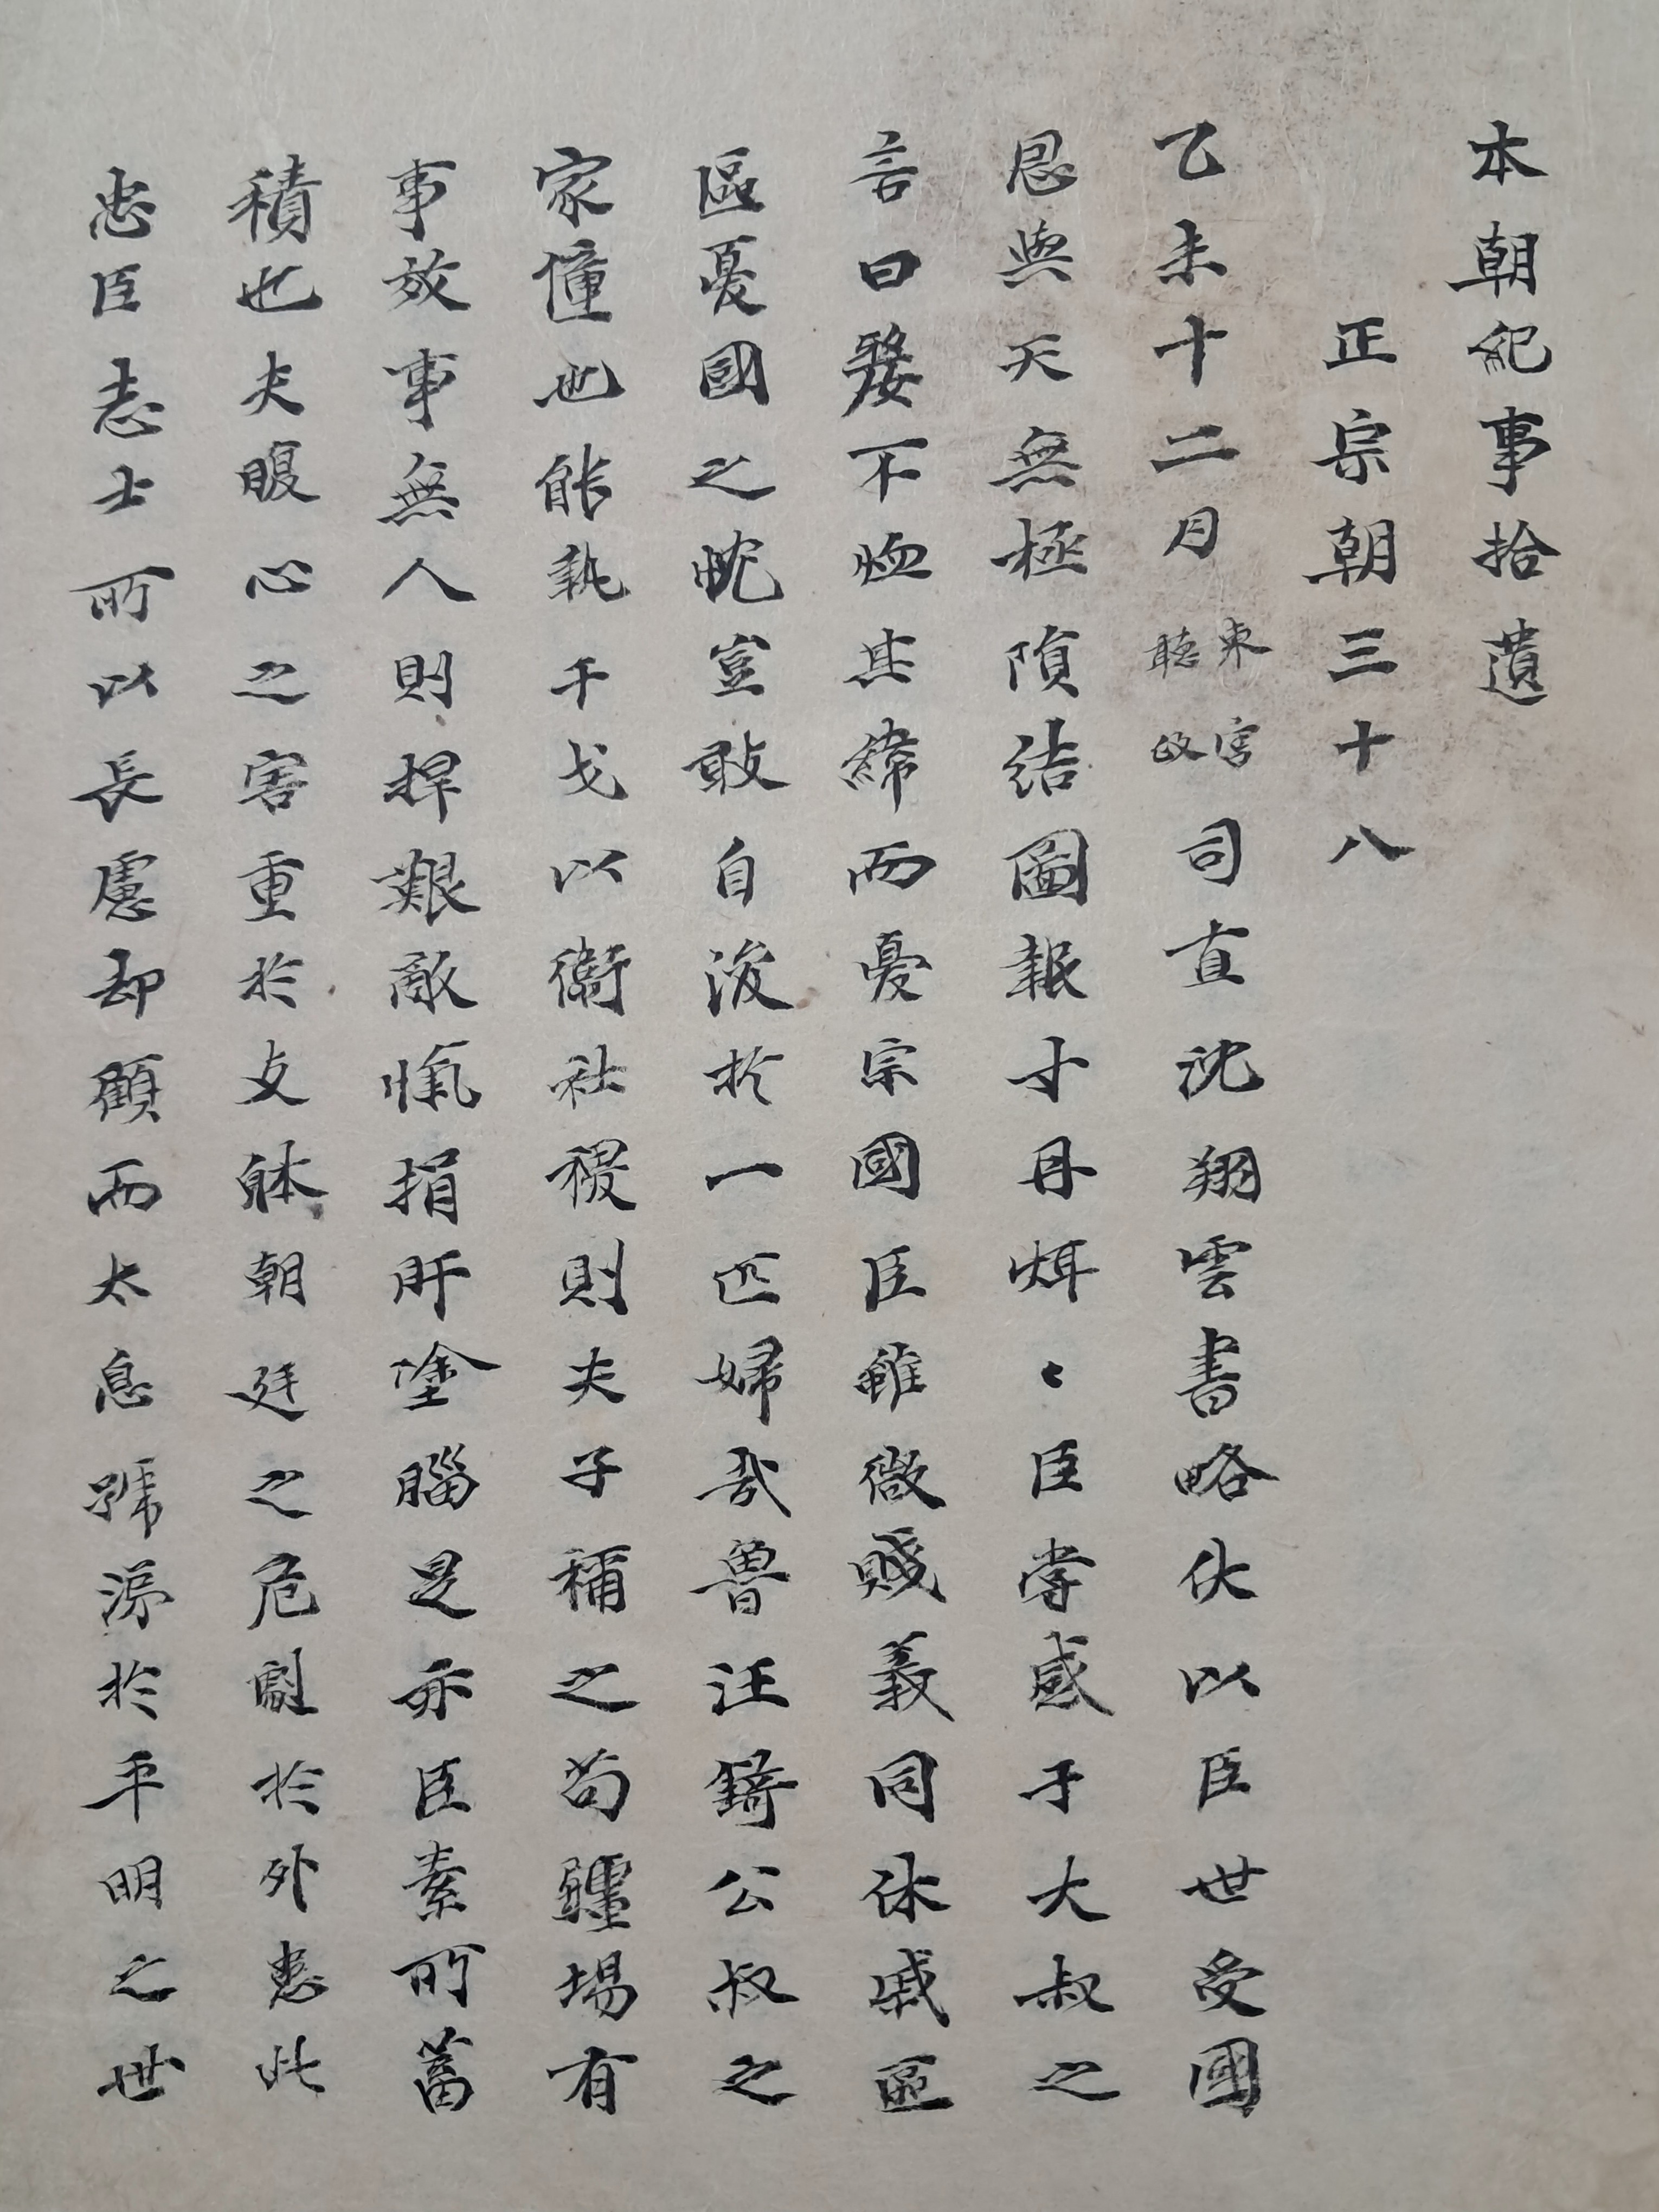 本朝紀事拾遺
正宗朝三十八
乙未十二月東宮聽政司直沈翔雲書略伏以臣世受國
恩與天無極隕結圖報寸丹炳〻臣嘗感子大叔之
言曰嫠不恤其緯而憂宗國臣雖微賤義同休戚區
區憂國之忱豈敢自後於一匹婦哉魯汪錡公叔之
家僮也能執干戈以衛社稷則夫子稱之苟疆場有
事放事無人則捍艱敵愾捐肝塗腦是亦臣素所蓄
積也夫腹心之害重於支體朝廷之危劇於外患此
忠臣志士所以長慮却顧而太息號涕於平明之世